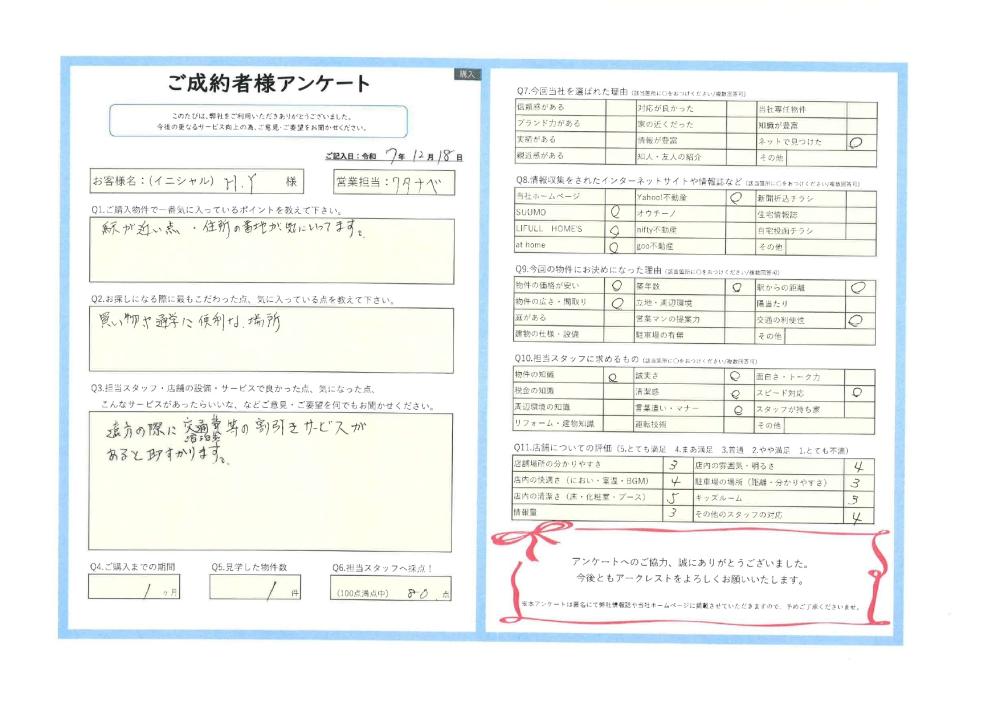 購入
ご成約者様アンケート
このたびは、弊社をご利用いただきありがとうございました。
今後の更なるサービス向上の為、ご意見・ご要望をお聞かせください。
ご記入日：令和 7年 12月 18日
お客様名：(イニシャル) H.Y 様
営業担当：ワタナベ
Q1.ご購入物件で一番気に入っているポイントを教えて下さい。
駅が近い点・住所の番地が気にいってます。
Q2.お探しになる際に最もこだわった点、気に入っている点を教えて下さい。
買い物や通学に便利な場所
Q3.担当スタッフ・店舗の設備・サービスで良かった点、気になった点、
こんなサービスがあったらいいな、などご意見・ご要望を何でもお聞かせください。
遠方の際に交通費
宿泊費
等の割引きサービスが
あると助すかります。
Q4.ご購入までの期間
1 ヶ月
Q5.見学した物件数
1 件
Q6.担当スタッフへ採点！
(100点満点中) 80 点
Q7.今回当社を選ばれた理由 (該当箇所に○をおつけください/複数回答可)
信頼感がある 対応が良かった 当社専任物件
ブランド力がある 家の近くだった 知識が豊富
実績がある 情報が豊富 ネットで見つけた ○
親近感がある 知人・友人の紹介 その他
Q8.情報収集をされたインターネットサイトや情報誌など (該当箇所に○をおつけください/複数回答可)
当社ホームページ Yahoo!不動産 ○ 新聞折込チラシ
SUUMO ○ オウチーノ 住宅情報誌
LIFULL HOME'S ○ nifty不動産 自宅投函チラシ
at home ○ goo不動産 その他
Q9.今回の物件にお決めになった理由 (該当箇所に○をおつけください/複数回答可)
物件の価格が安い ○ 築年数 ○ 駅からの距離 ○
物件の広さ・間取り ○ 立地・周辺環境 陽当たり
庭がある 営業マンの提案力 交通の利便性 ○
建物の仕様・設備 駐車場の有無 その他
Q10.担当スタッフに求めるもの (該当箇所に○をおつけください/複数回答可)
物件の知識 ○ 誠実さ ○ 面白さ・トーク力
税金の知識 清潔感 ○ スピード対応 ○
周辺環境の知識 言葉遣い・マナー ○ スタッフが持ち家
リフォーム・建物知識 運転技術 その他
Q11.店舗についての評価 (5.とても満足 4.まあ満足 3.普通 2.やや満足 1.とても不満)
店舗場所の分かりやすさ 3 店内の雰囲気・明るさ 4
店内の快適さ (におい・室温・BGM) 4 駐車場の場所 (距離・分かりやすさ) 3
店内の清潔さ (床・化粧室・ブース) 5 キッズルーム 3
情報量 3 その他のスタッフの対応 4
アンケートへのご協力、誠にありがとうございました。
今後ともアークレストをよろしくお願いいたします。
※本アンケートは匿名にて弊社情報誌や当社ホームページに掲載させていただきますので、予めご了承くださいませ。